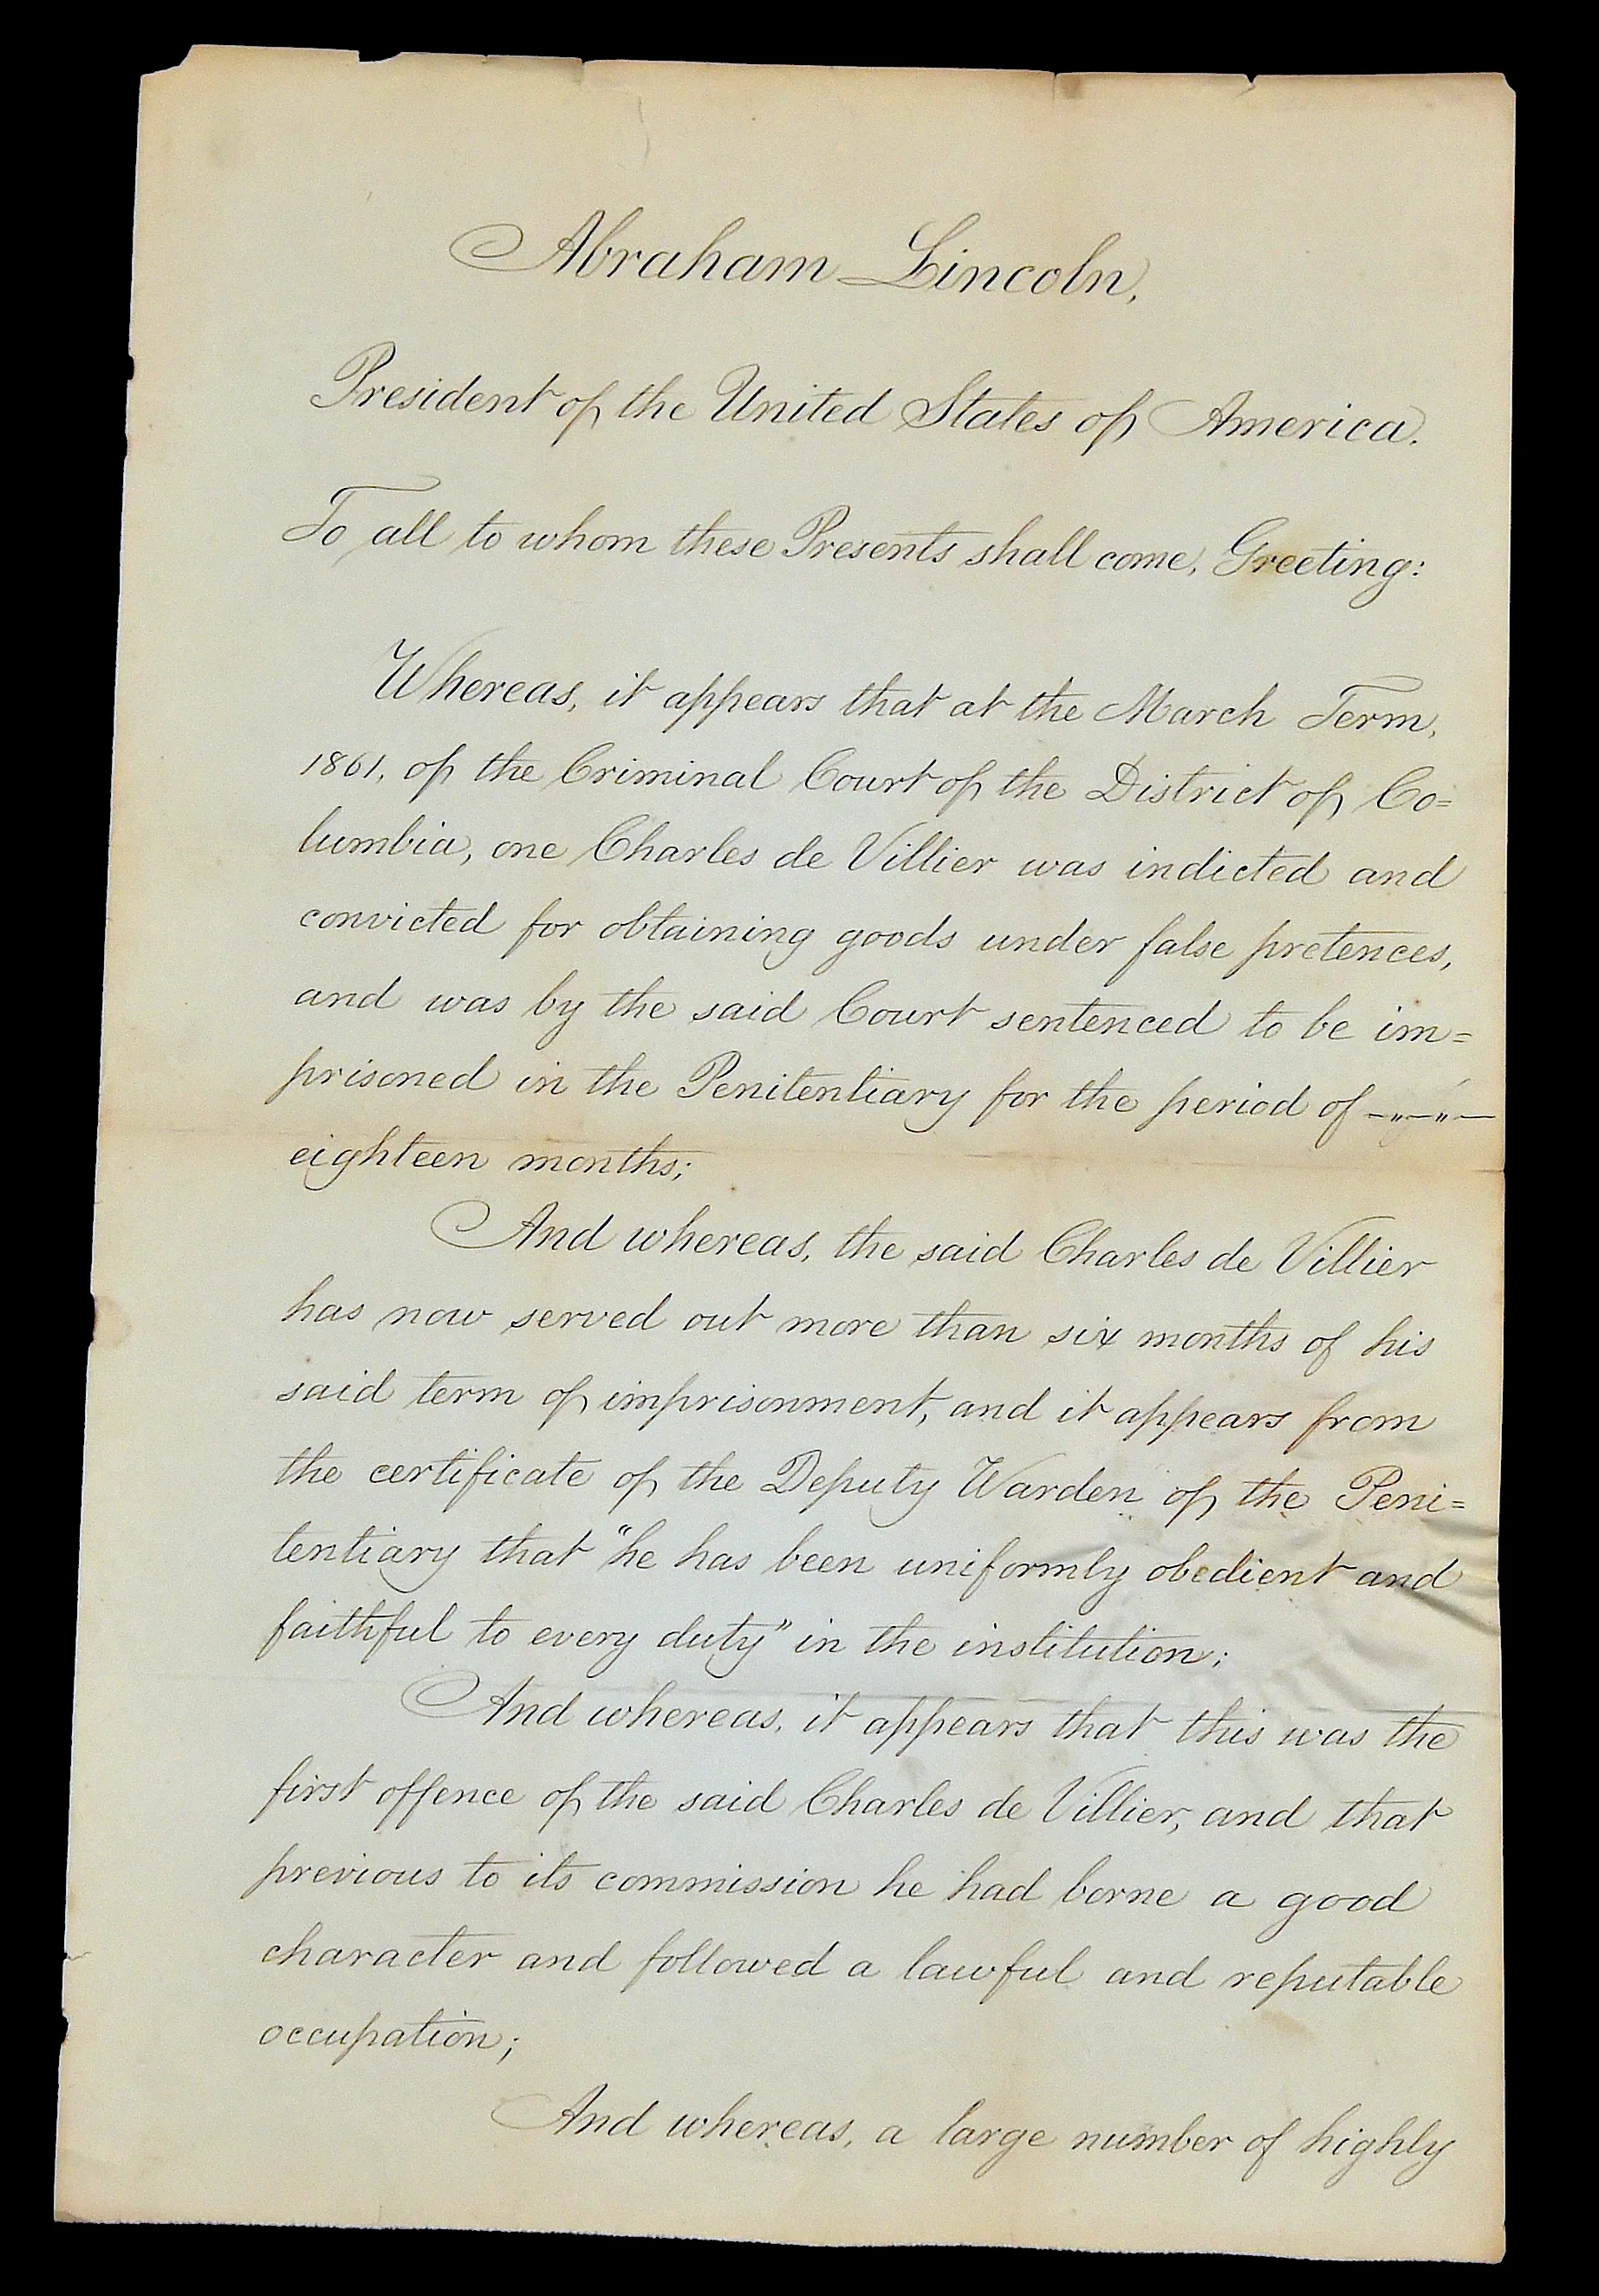 Abraham Lincoln,
President of the United States of America.
To all to whom these Presents shall come, Greeting:
Whereas, it appears that at the March Term,
1861, of the Criminal Court of the District of Co=
lumbia, one Charles de Villier was indicted and
convicted for obtaining goods under false pretences,
and was by the said Court sentenced to be im=
prisoned in the Penitentiary for the period of —"—"—
eighteen months;
And whereas, the said Charles de Villier
has now served out more than six months of his
said term of imprisonment, and it appears from
the certificate of the Deputy Warden of the Peni=
tentiary that "he has been uniformly obedient and
faithful to every duty" in the institution;
And whereas, it appears that this was the
first offence of the said Charles de Villier, and that
previous to its commission he had borne a good
character and followed a lawful and reputable
occupation;
And whereas, a large number of highly